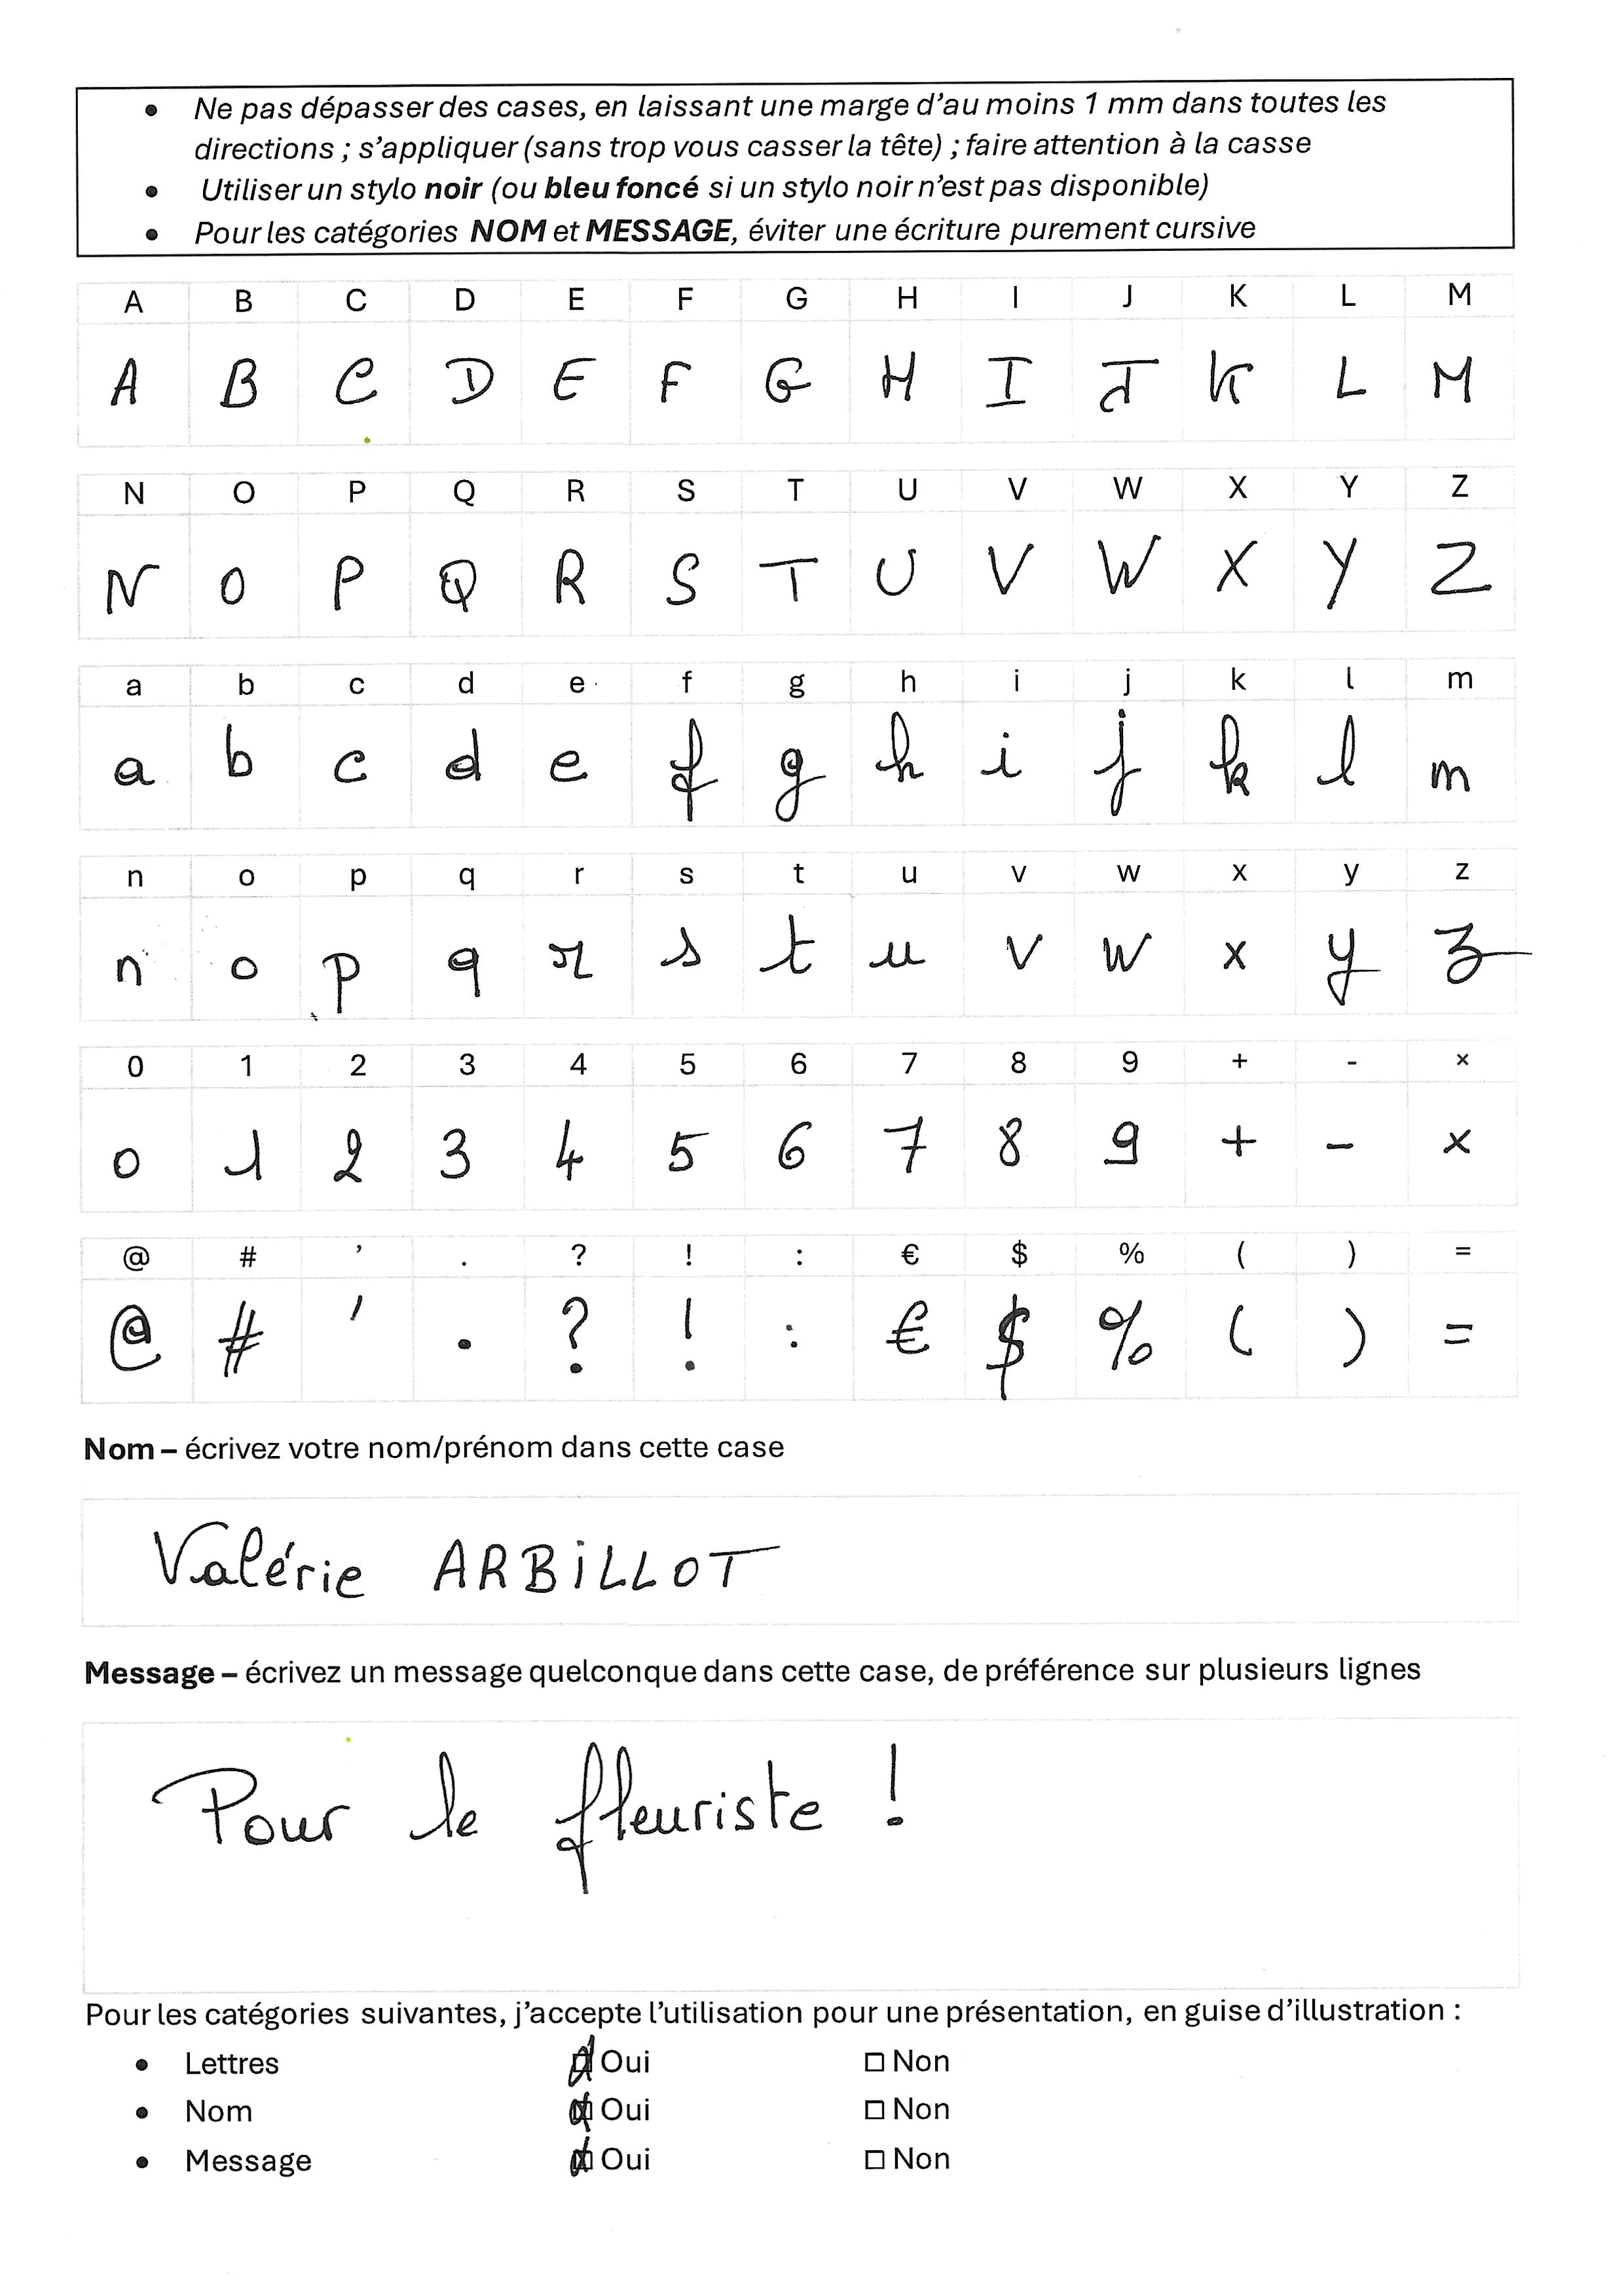 • Ne pas dépasser des cases, en laissant une marge d’au moins 1 mm dans toutes les
directions ; s’appliquer (sans trop vous casser la tête) ; faire attention à la casse
• Utiliser un stylo noir (ou bleu foncé si un stylo noir n’est pas disponible)
• Pour les catégories NOM et MESSAGE, éviter une écriture purement cursive
A B C D E F G H I J K L M
A B C D E F G H I J K L M
N O P Q R S T U V W X Y Z
N O P Q R S T U V W X Y Z
a b c d e f g h i j k l m
a b c d e f g h i j k l m
n o p q r s t u v w x y z
n o p q r s t u v w x y z
0 1 2 3 4 5 6 7 8 9 + - ×
0 1 2 3 4 5 6 7 8 9 + - ×
@ # ’ . ? ! : € $ % ( ) =
@ # ' . ? ! : € $ % ( ) =
Nom – écrivez votre nom/prénom dans cette case
Valérie ARBiLLOT
Message – écrivez un message quelconque dans cette case, de préférence sur plusieurs lignes
Pour le fleuriste !
Pour les catégories suivantes, j’accepte l’utilisation pour une présentation, en guise d’illustration :
• Lettres ☒ Oui ☐ Non
• Nom ☒ Oui ☐ Non
• Message ☒ Oui ☐ Non